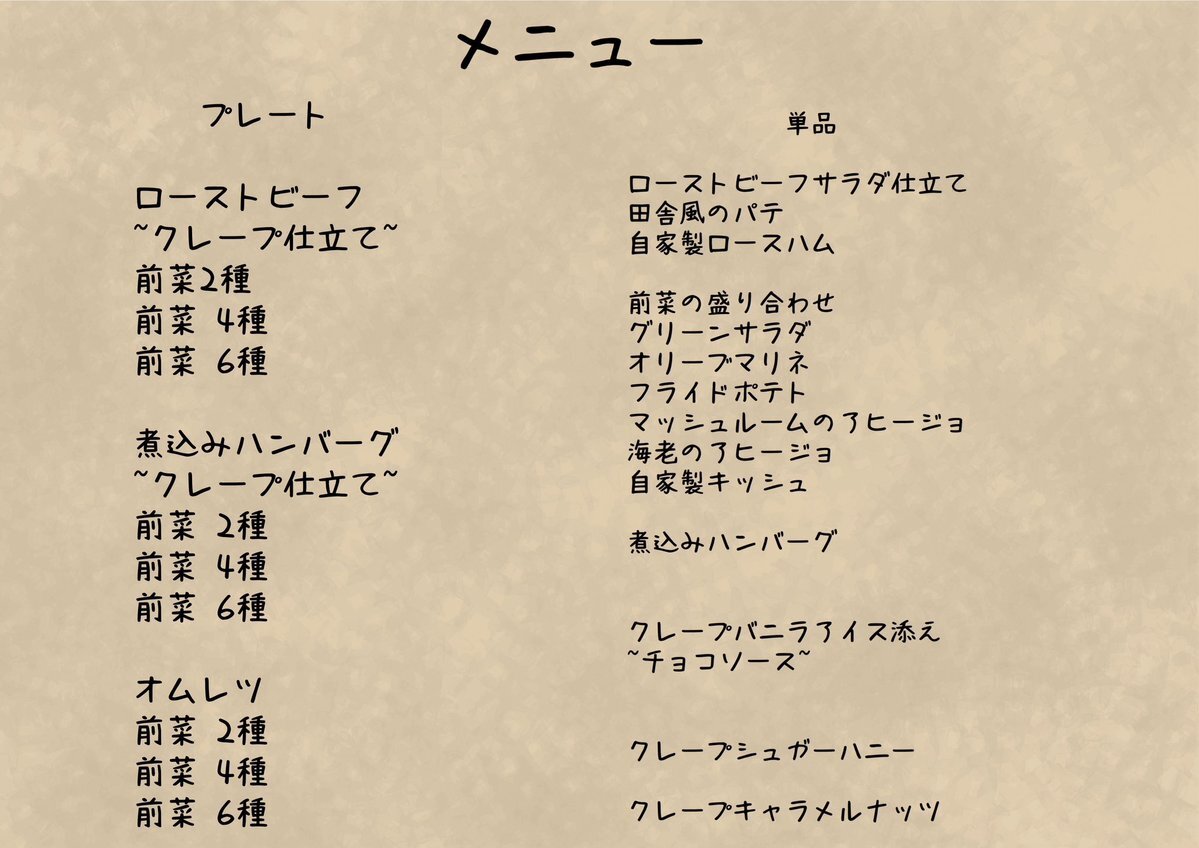 メニュー
プレート
ローストビーフ
~クレープ仕立て~
前菜2種
前菜 4種
前菜 6種
煮込みハンバーグ
~クレープ仕立て~
前菜 2種
前菜 4種
前菜 6種
オムレツ
前菜 2種
前菜 4種
前菜 6種
単品
ローストビーフサラダ仕立て
田舎風のパテ
自家製ロースハム
前菜の盛り合わせ
グリーンサラダ
オリーブマリネ
フライドポテト
マッシュルームのアヒージョ
海老のアヒージョ
自家製キッシュ
煮込みハンバーグ
クレープバニラアイス添え
~チョコソース~
クレープシュガーハニー
クレープキャラメルナッツ